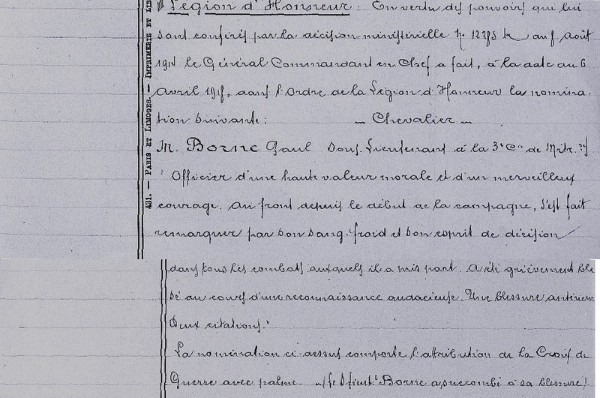 Légion d'Honneur : En vertu des pouvoirs qui lui
sont conférés par la décision ministérielle N° 12285 K du 8 août
1914 le Général Commandant en Chef a fait, à la date du 6
avril 1918, dans l'Ordre de la Légion d'Honneur la nomina
tion suivante : — Chevalier —
M. Borne Paul Sous Lieutenant à la 3e Cie de Mitr.
" Officier d'une haute valeur morale et d'un merveilleux
courage. Au front depuis le début de la campagne, s'est fait
remarquer par son sang froid et son esprit de décision
dans tous les combats auxquels il a pris part. A été grièvement bles
sé au cours d'une reconnaissance audacieuse. Une blessure antérieure
Deux citations. "
La nomination ci-dessus comporte l'attribution de la Croix de
Guerre avec palme. (le S/Lieutt Borne a succombé à sa blessure)
401. — PARIS ET LIMOGES. — IMPRIMERIE ET LI